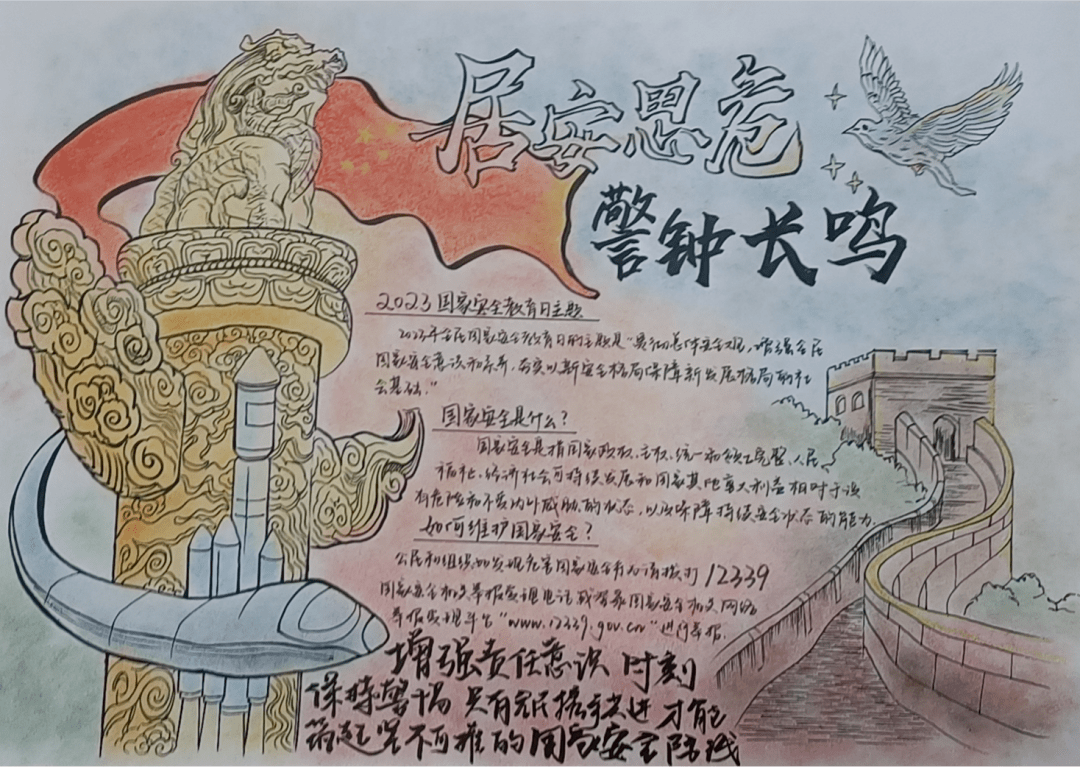 居安思危
警钟长鸣
2023国家安全教育日主题
2023年全民国家安全教育日的主题是“贯彻总体安全观,增强全民
国家安全意识和素养,夯实以新安全格局保障新发展格局的社
会基础."
国家安全是什么?
国家安全是指国家政权、主权、统一和领土完整、人民
福祉、经济社会可持续发展和国家其他重大利益相对于没
有危险和不受内外威胁的状态,以及保障持续安全状态的能力.
如何维护国家安全?
公民和组织如发现危害国家安全行为请拨打12339
国家安全机关举报受理电话或登录国家安全机关网络
举报受理平台“www.12339.gov.cn"进行举报.
增强责任意识 时刻
保持警惕 只有全民携手共进 才能
筑起坚不可摧的国家安全防线